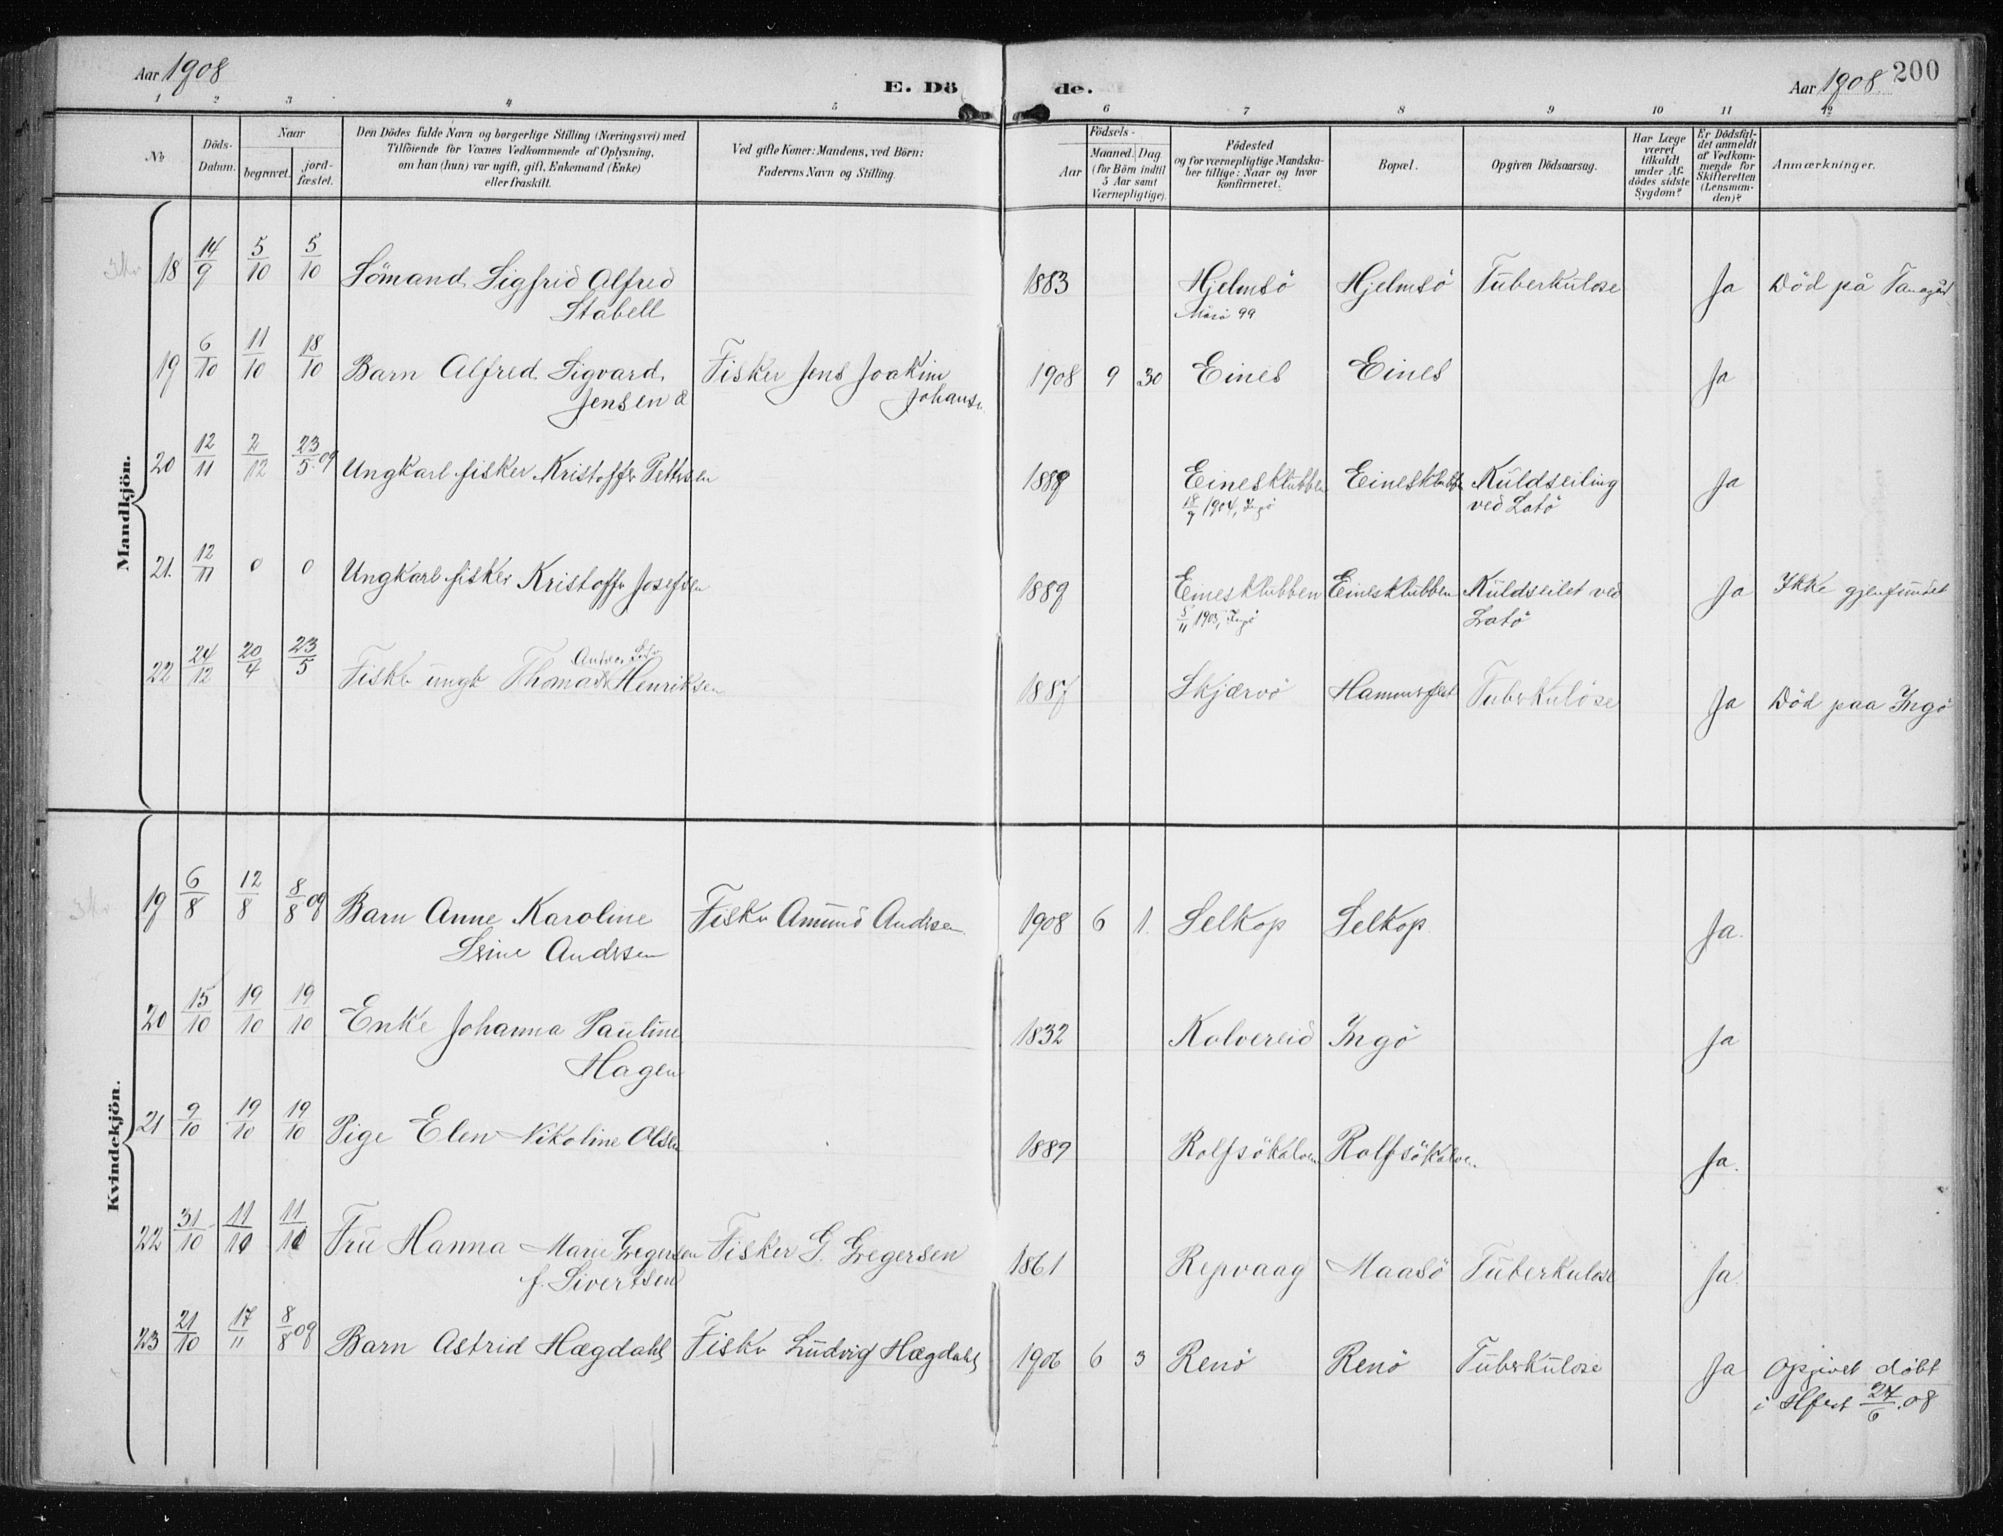 Aar 1908
E. Dö
de.
Aar 1908
200
1 2 3 4 5 6 7 8 9 10 11 12
No
Döds-Datum.
Naar
begravet.
jord-fæstet.
Den Dödes fulde Navn og borgerlige Stilling (Næringsvei) med
Tilföiende for Voxnes Vedkommende af Oplysning,
om han (hun) var ugift, gift, Enkemand (Enke)
eller fraskilt.
Ved gifte Koner: Mandens, ved Börn:
Faderens Navn og Stilling.
Födsels-
Aar
Maaned. Dag
(for Börn indtil
5 Aar samt
Værnepligtige).
Födested
og for værnepligtige Mandska-
ber tillige: Naar og hvor
konfirmeret.
Bopæl.
Opgiven Dödsaarsag.
Har Læge
været
tilkaldt
under Af-
dödes sidste
Sygdom?
Er Dödsfal-
det anmeldt
af Vedkom-
mende for
Skifteretten
(Lensman-
den)?
Anmærkninger.
Mandkjön.
18 14/9 5/10 5/10 Sömand Sigfrid Alfred 1883 Hjelmsö Hjelmsö Tuberkulose Ja Död på
Stabell
99
19 6/10 11/10 18/10 Barn Alfred Sigvard Fisker Jens Joakim 1908 9 30 Eines Eines Ja
Jensen
20 12/11 2/12 23/5 09 Ungkarl fisker Kristoffer Pettersen Einesklubben Einesklubben Kuldseiling Ja
1904, Ingö ved Latö
21. 12/11 0 0 Ungkarl fisker Kristoffer Josefsen 1889 Einesklubben Einesklubben Kuldseilet ved Ja Ikke gjenfundet
5/11 1903, Ingö Latö
22 24/12 20/4 23/5 Fisker ungk Thomas Henriksen 1887 Skjærvö Hammerfest Tuberkulose Ja Död paa Ingö
Kvindekjön.
19 6/8 12/8 8/8 09 Barn Anne Karoline Fisker Amund Andersen 1908 6 1. Selkop Selkop Ja.
Andersen
20 15/10 19/10 19/10 Enke Johanna Pauline 1832 Kolvereid Ingö Ja
Hagen
21 9/10 19/10 19/10 Pige Elen Nikoline Olsen 1889 Rolfsökalven Rolfsökalven Ja.
22 31/10 11/11 11/11 Fru Hanna Marie Gregersen Fisker G. Gregersen 1861 Repvaag Maasö Tuberkulose Ja.
f. Sivertsen
23 21/10 17/11 8/8 09 Barn Astrid Hægdahl Fisker Ludvig Hægdahl 1906 6 3 Renö Renö Tuberkulose Ja Opgivet döbt
i Hfest 27/6 .08